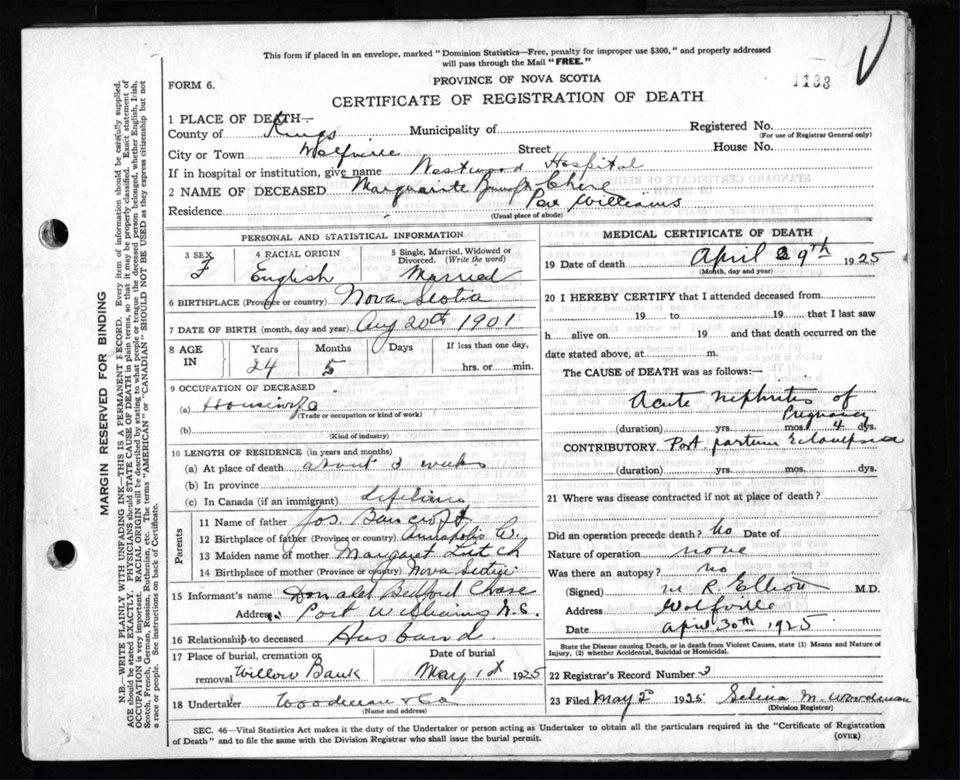 This form if placed in an envelope, marked "Dominion Statistics—Free, penalty for improper use $300," and properly addressed
will pass through the Mail "FREE."
1133
PROVINCE OF NOVA SCOTIA
FORM 6.
CERTIFICATE OF REGISTRATION OF DEATH
1 PLACE OF DEATH—
County of Kings Municipality of Registered No.
(For use of Registrar General only)
City or Town Wolfville Street House No.
If in hospital or institution, give name Westwood Hospital
2 NAME OF DECEASED Marguerite Chase
Residence Port Williams
(Usual place of abode)
PERSONAL AND STATISTICAL INFORMATION
3 SEX F
4 RACIAL ORIGIN English
5 Single, Married, Widowed or Divorced. (Write the word) Married
6 BIRTHPLACE (Province or country) Nova Scotia
7 DATE OF BIRTH (month, day and year) Aug 20th 1901
8 AGE IN Years Months Days If less than one day,
24 5 hrs. or min.
9 OCCUPATION OF DECEASED
(a) Housewife
(Trade or occupation or kind of work)
(b)
(Kind of industry)
10 LENGTH OF RESIDENCE (in years and months)
(a) At place of death about 3 weeks
(b) In province
(c) In Canada (if an immigrant) lifetime
Parents
11 Name of father Jos. Bancroft
12 Birthplace of father (Province or country) Annapolis Co.
13 Maiden name of mother Margaret
14 Birthplace of mother (Province or country) Nova Scotia
15 Informant's name Donald Bedford Chase
Address Port Williams N.S.
16 Relationship to deceased Husband.
17 Place of burial, cremation or removal Willow Bank
Date of burial May 1st 1925
18 Undertaker Woodman & Co
(Name and address)
MEDICAL CERTIFICATE OF DEATH
19 Date of death April 29th 1925
(Month, day and year)
20 I HEREBY CERTIFY that I attended deceased from
19 to 19 that I last saw
h alive on 19 and that death occurred on the
date stated above, at m.
The CAUSE of DEATH was as follows:—
Acute nephritis of
Pregnancy
(duration) yrs. mos. 4 dys.
CONTRIBUTORY Post partum Eclampsia
(duration) yrs. mos. dys.
21 Where was disease contracted if not at place of death?
Did an operation precede death? No Date of
Nature of operation none
Was there an autopsy? no
(Signed) M. R. Elliott M.D.
Address Wolfville
Date April 30th 1925
State the Disease causing Death, or in death from Violent Causes, state (1) Means and Nature of
Injury, (2) whether Accidental, Suicidal or Homicidal.
22 Registrar's Record Number 3
23 Filed May 2 1925 Selina M. Woodman
(Division Registrar)
SEC. 46—Vital Statistics Act makes it the duty of the Undertaker or person acting as Undertaker to obtain all the particulars required in the "Certificate of Registration
of Death" and to file the same with the Division Registrar who shall issue the burial permit.
(OVER)
MARGIN RESERVED FOR BINDING
N.B.—WRITE PLAINLY WITH UNFADING INK—THIS IS A PERMANENT RECORD. Every item of information should be carefully supplied.
AGE should be stated EXACTLY. PHYSICIANS should STATE CAUSE OF DEATH in plain terms, so that it may be properly classified. Exact statement of
OCCUPATION is very important. RACIAL ORIGIN will be described by stating to what people or tongue the deceased person belonged, whether English, Irish,
Scotch, French, German, Russian, Ruthenian, etc. The terms "AMERICAN" or "CANADIAN" SHOULD NOT BE USED as they express citizenship but not
a race or people. See instructions on back of Certificate.